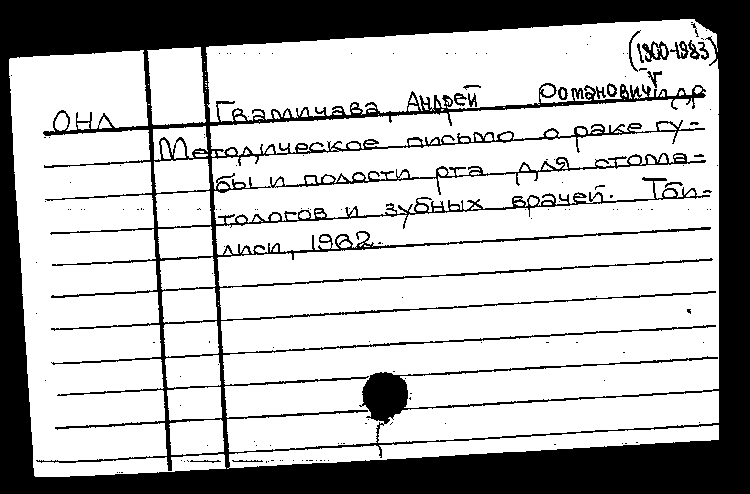 (1900-1983)
ОНЛ Гвамичава, Андрей Романович и др
Методическое письмо о раке гу-
бы и полости рта для стома-
тологов и зубных врачей. Тби-
лиси, 1962.